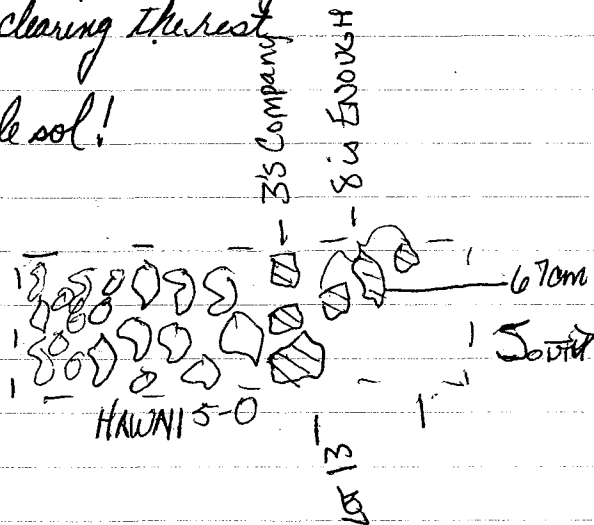 clearing the rest
le sol!
3's Company
8 is ENOUGH
67cm
SOUTH
HAWAII 5-0
Lot 13